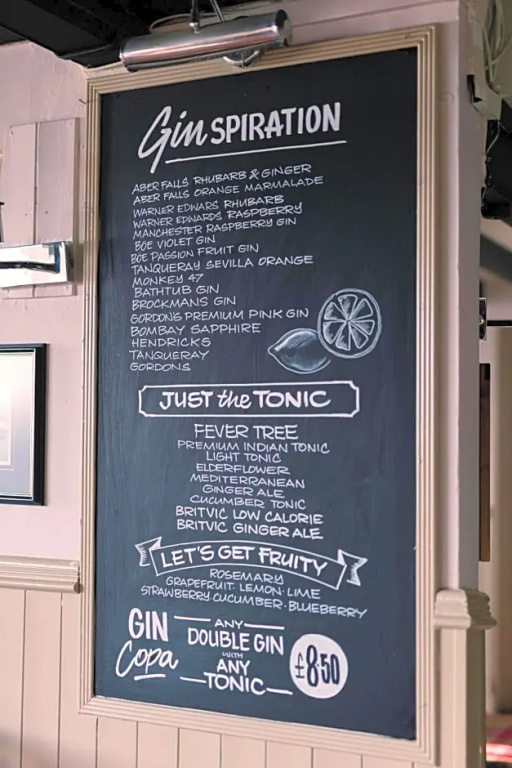 Gin SPIRATION
ABER FALLS RHUBARB & GINGER
ABER FALLS ORANGE MARMALADE
WARNER EDWARS RHUBARB
WARNER EDWARDS RASPBERRY
MANCHESTER RASPBERRY GIN
BOE VIOLET GIN
BOE PASSION FRUIT GIN
TANQUERAY SEVILLA ORANGE
MONKEY 47
BATHTUB GIN
BROCKMANS GIN
GORDONS PREMIUM PINK GIN
BOMBAY SAPPHIRE
HENDRICKS
TANQUERAY
GORDONS
JUST the TONIC
FEVER TREE
PREMIUM INDIAN TONIC
LIGHT TONIC
ELDERFLOWER
MEDITERRANEAN
GINGER ALE
CUCUMBER TONIC
BRITVIC LOW CALORIE
BRITVIC GINGER ALE
LET'S GET FRUITY
ROSEMARY
GRAPEFRUIT. LEMON. LIME
STRAWBERRY. CUCUMBER. BLUEBERRY
GIN Copa
ANY
DOUBLE GIN
WITH
ANY
TONIC
£8.50